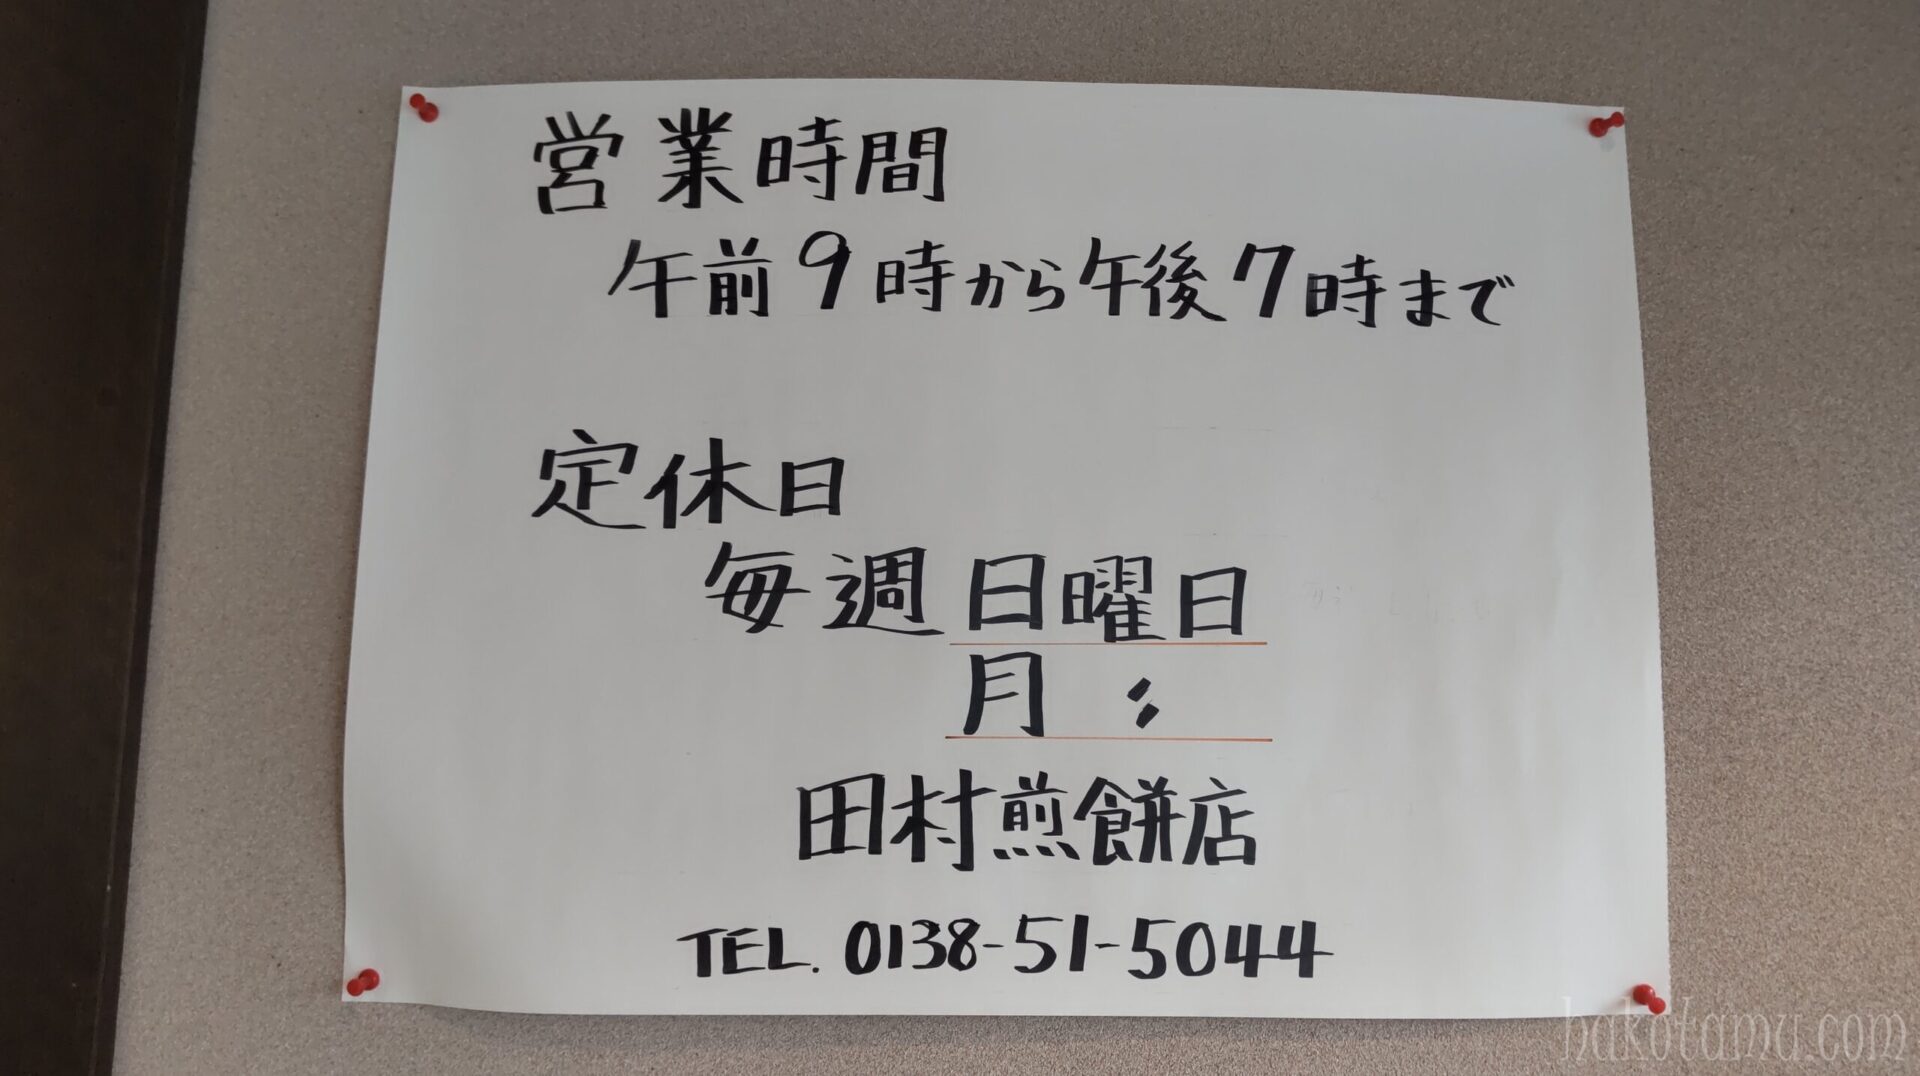 営業時間
午前9時から午後7時まで
定休日
毎週日曜日
月 〃
田村煎餅店
TEL. 0138-51-5044
hakotamu.com